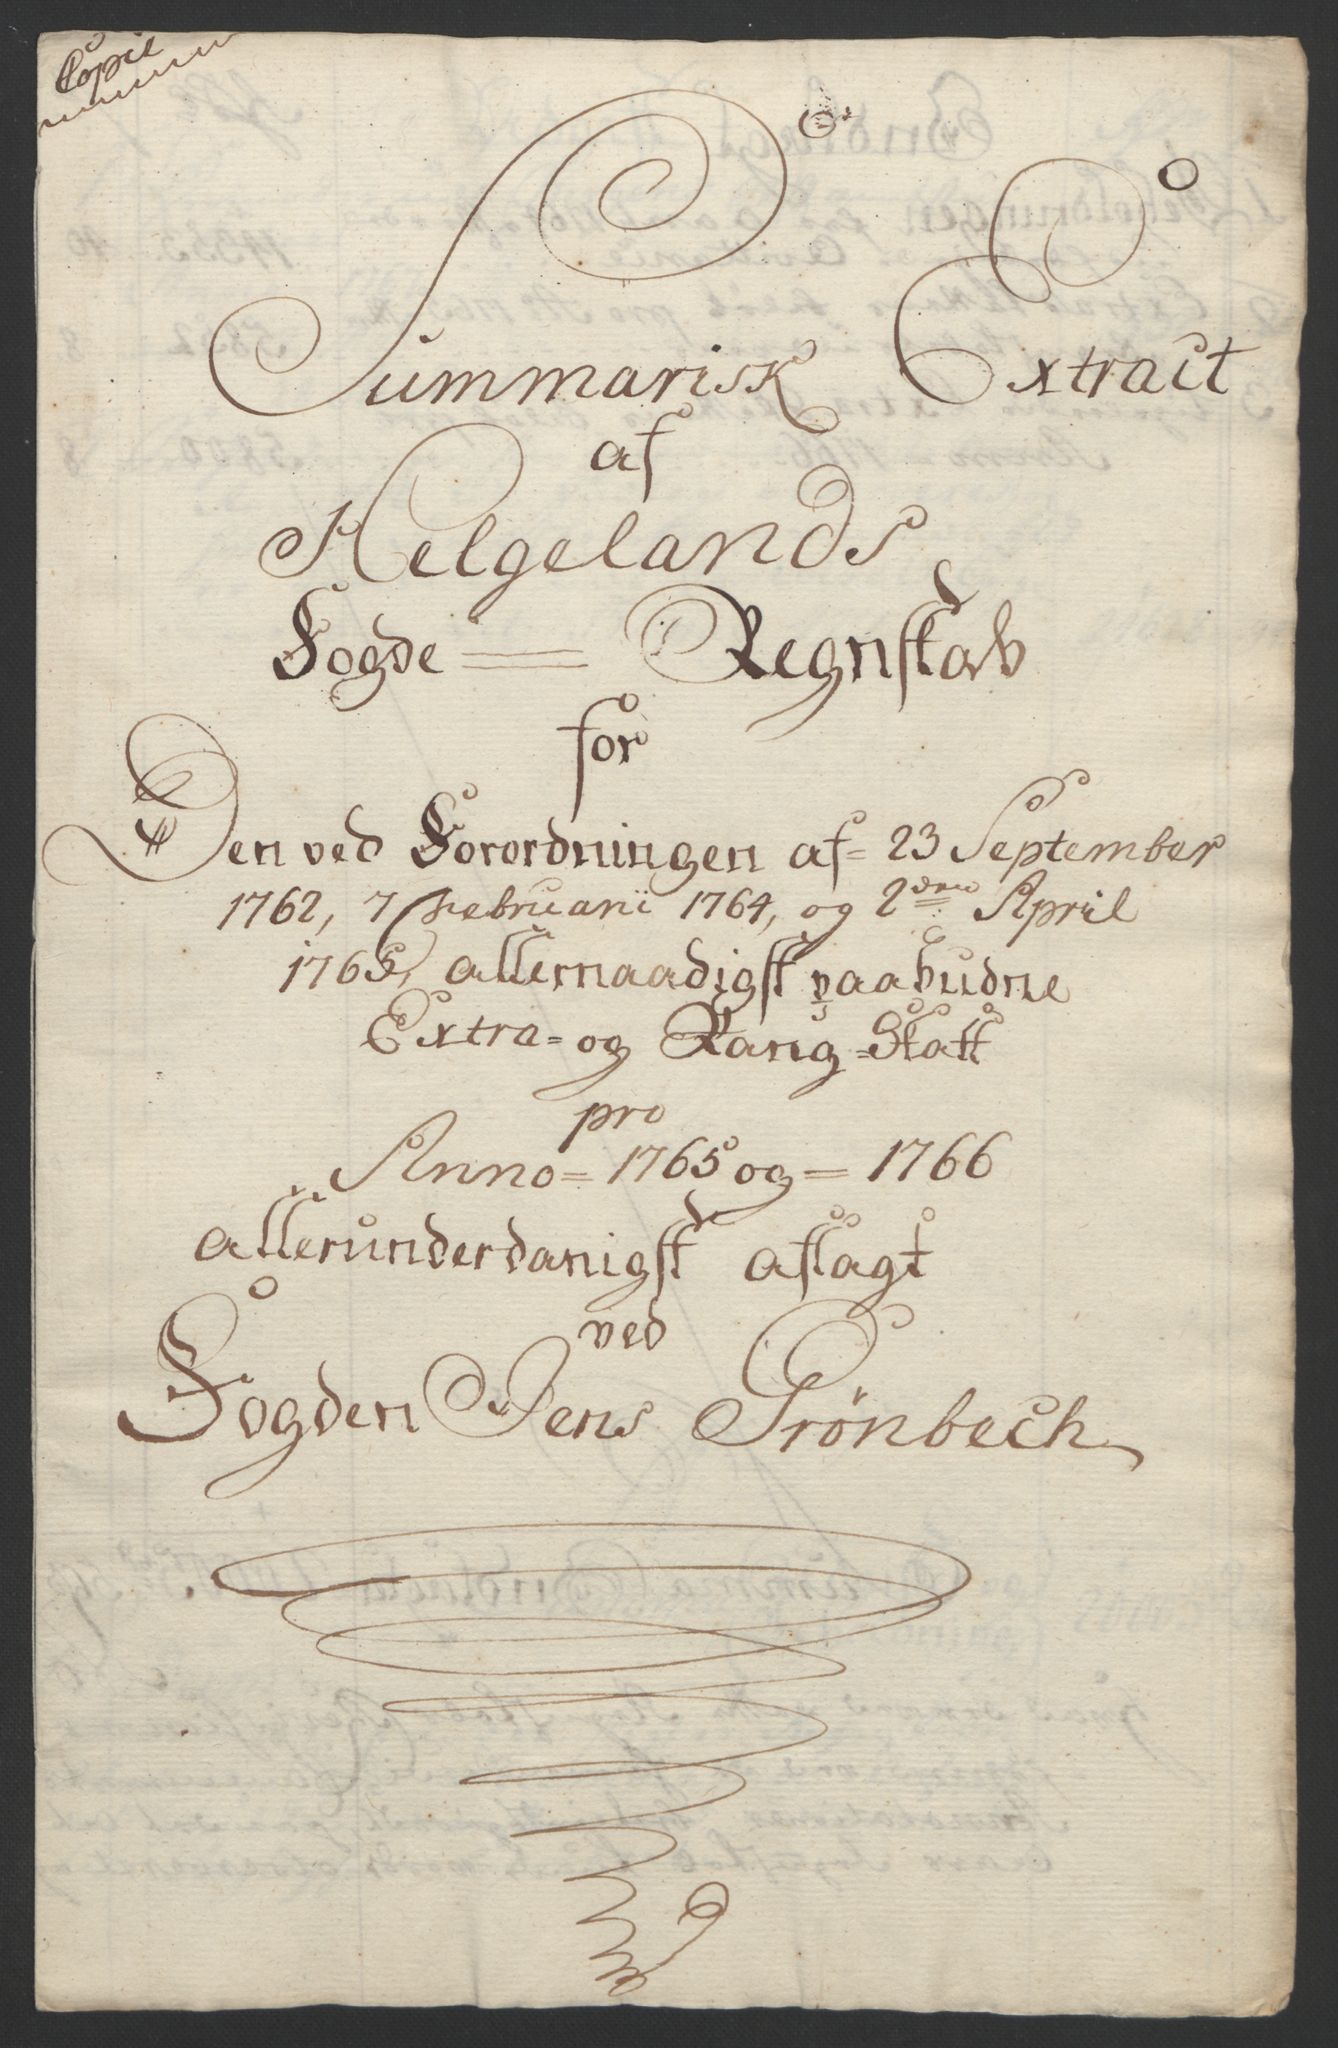 Copie
Summarisk Extract
af
Helgelands
Fogde = Regnskab
for
Den ved Forordningen af 23 September
1762, 7 Februarii 1764, og 2den April
1765, allernaadigst paabudne
Extra- og Rang-Skatt
pro
Anno = 1765 og = 1766
allerunderdanigst aflagt
ved
Fogden Jens Grönbech